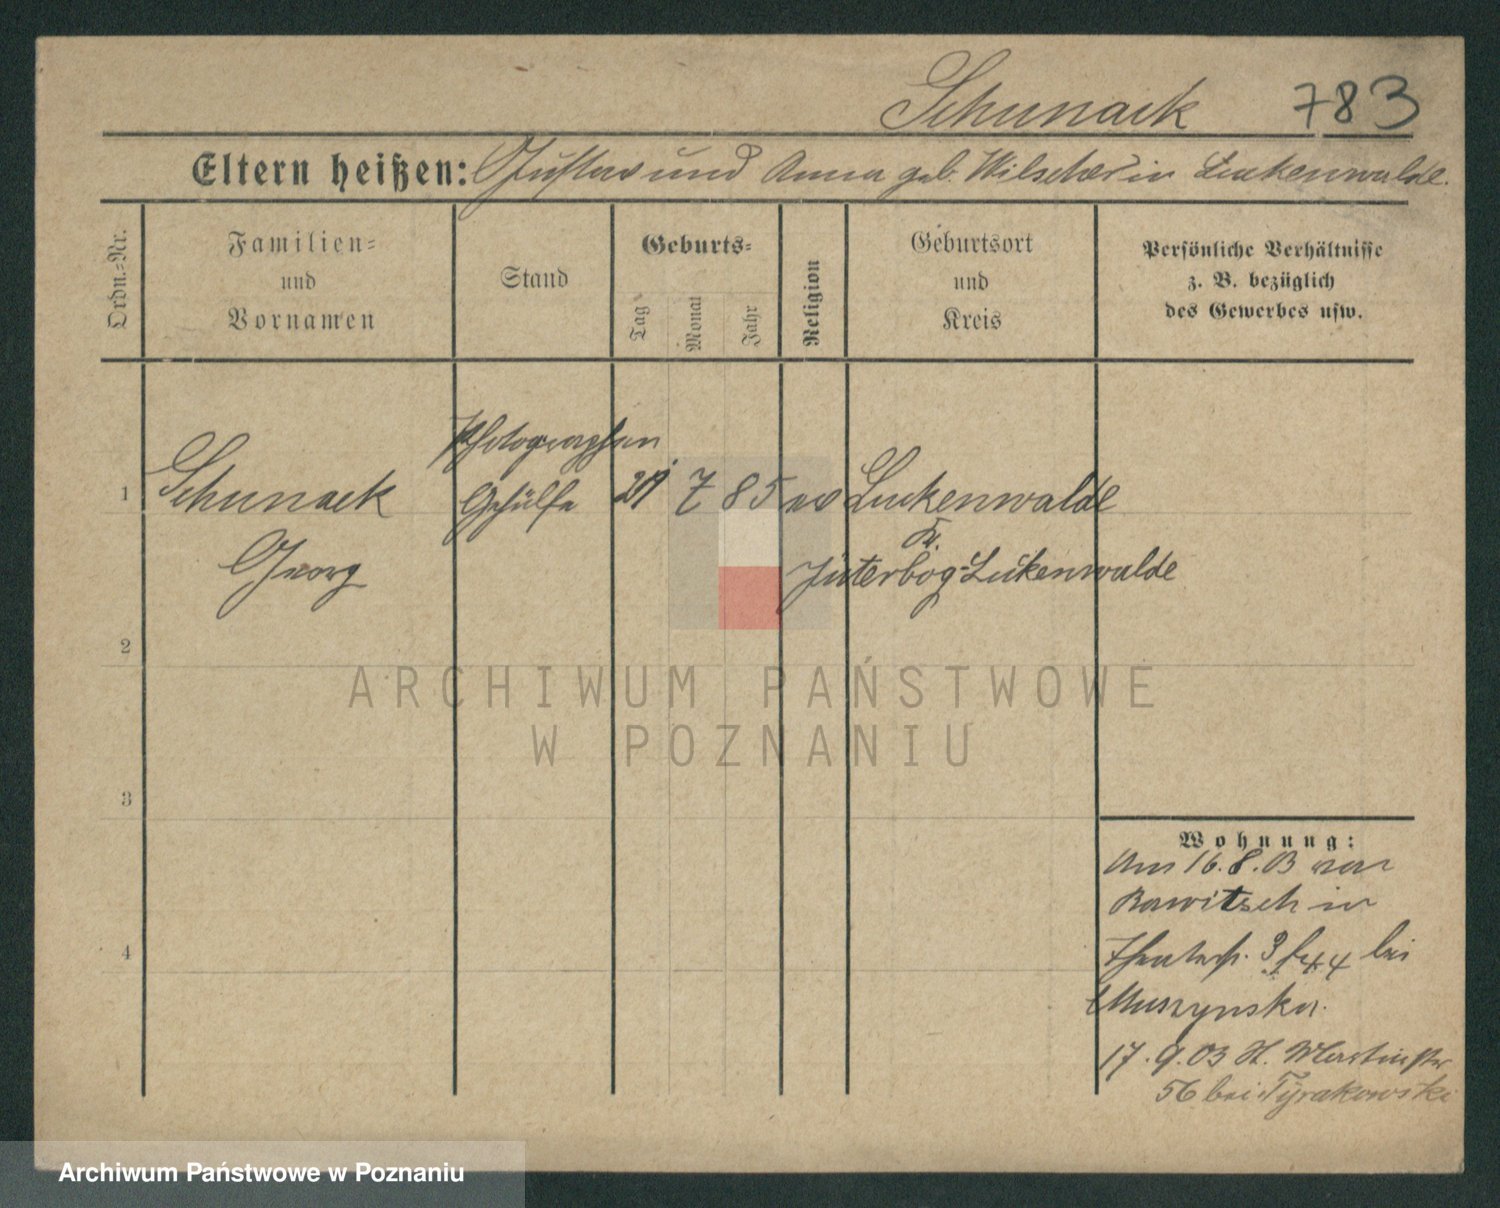 Schunack 783
Eltern heißen: Gustav und Anna geb. Wilscher in Luckenwalde.
Ordn.=Nr.
Familien=
und
Vornamen
Stand
Geburts=
Tag
Monat
Jahr
Religion
Geburtsort
und
Kreis
Persönliche Verhältnisse
z. B. bezüglich
des Gewerbes usw.
Photographen
1 Schunack Gehülfe 7 85 ev Luckenwalde
Kr.
Georg Jüterbog=Luckenwalde
2
3
4
ARCHIWUM PAŃSTWOWE
W POZNANIU
Wohnung:
Am 16.8.03 von
Rawitsch in
Theaterst. 3 bei
Muszynska.
17.9.03 St. Martinstr
56 bei Tyrakowski
Archiwum Państwowe w Poznaniu